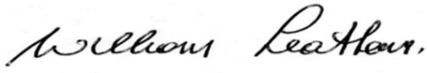 William Leathem.